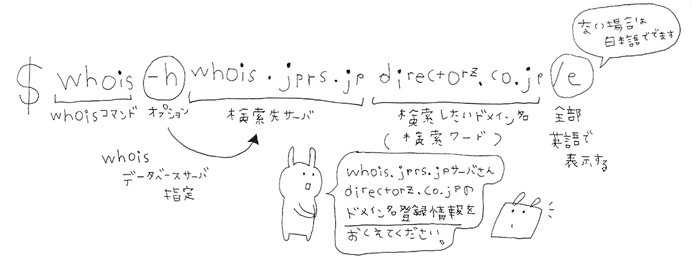 ない場合は
日本語ででます
$ whois -h whois.jprs.jp directorz.co.jp /e
whoisコマンド オプション 検索先サーバ 検索したいドメイン名 全部
(検索ワード) 英語で
表示する
whois
データベースサーバ
指定
whois.jprs.jpサーバさん
directorz.co.jpの
ドメイン名登録情報を
おくえてください。